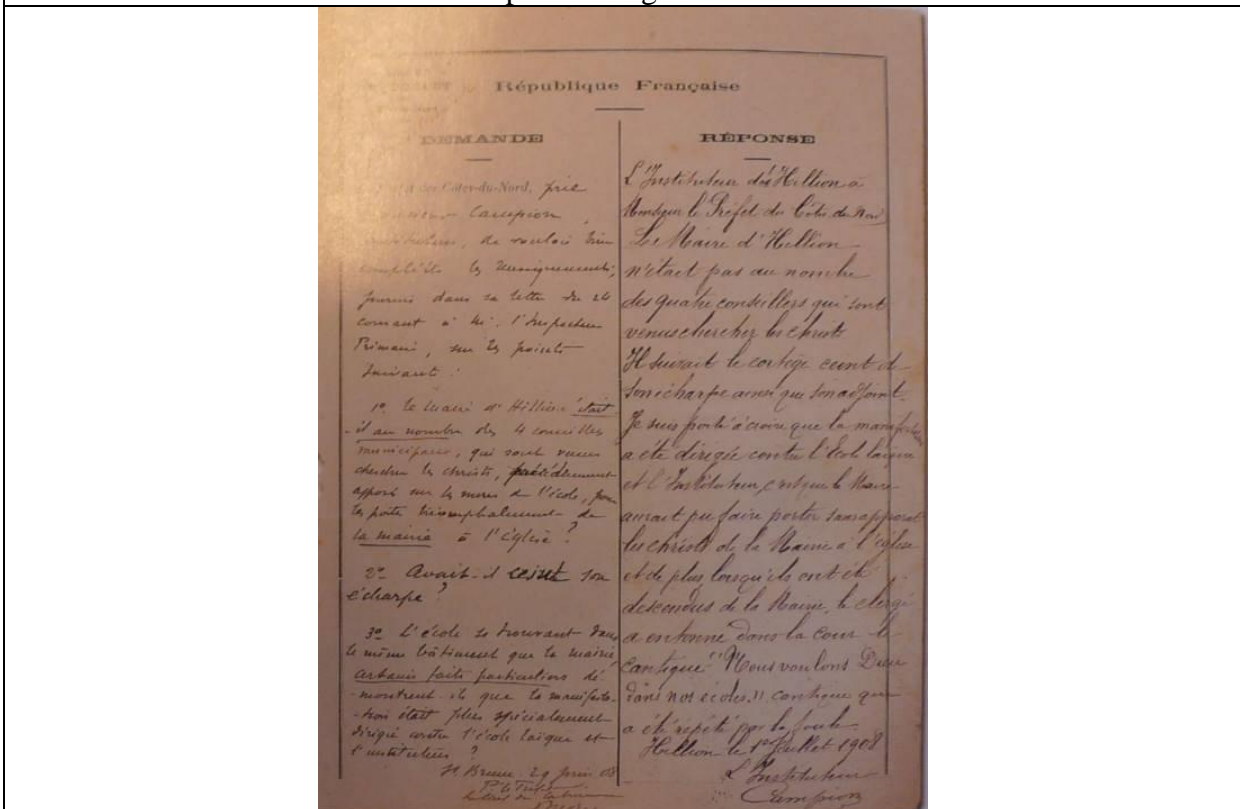 République Française
DEMANDE
Côtes-du-Nord, prie
Campion
de vouloir bien
les renseignements,
fournis dans sa lettre du 24
courant à M. l'Inspecteur
Primaire, sur les points
suivants :
1º le maire d'Hillion était
-il au nombre des 4 conseillers
municipaux, qui sont venus
chercher les christs, précédemment
apposés sur les murs de l'école, pour
les porter triomphalement de
la mairie à l'église ?
2º Avait-il ceint son
écharpe ?
3º L'école se trouvant dans
le même bâtiment que la mairie
certains faits particuliers dé
-montrent-ils que la manifesta-
-tion était plus spécialement
dirigée contre l'école laïque et
l'instituteur ?
St Brieuc 29 juin 08
RÉPONSE
L'Instituteur d'Hillion à
Monsieur le Préfet des Côtes-du-Nord
Le Maire d'Hillion
n'était pas au nombre
des quatre conseillers qui sont
venus chercher les christs
Il suivait le cortège ceint de
son écharpe ainsi que son adjoint.
Je suis porté à croire que la manifestation
a été dirigée contre l'Ecole laïque
et l'Instituteur, le Maire
aurait pu faire porter sans apparat
les christs de la Mairie à l'église
et de plus lorsqu'ils ont été
descendus de la Mairie, le clergé
a entonné dans la cour le
cantique "Nous voulons Dieu
dans nos écoles!! cantique qui
a été répété par la foule.
Hillion le 1er Juillet 1908
L'Instituteur
Campion